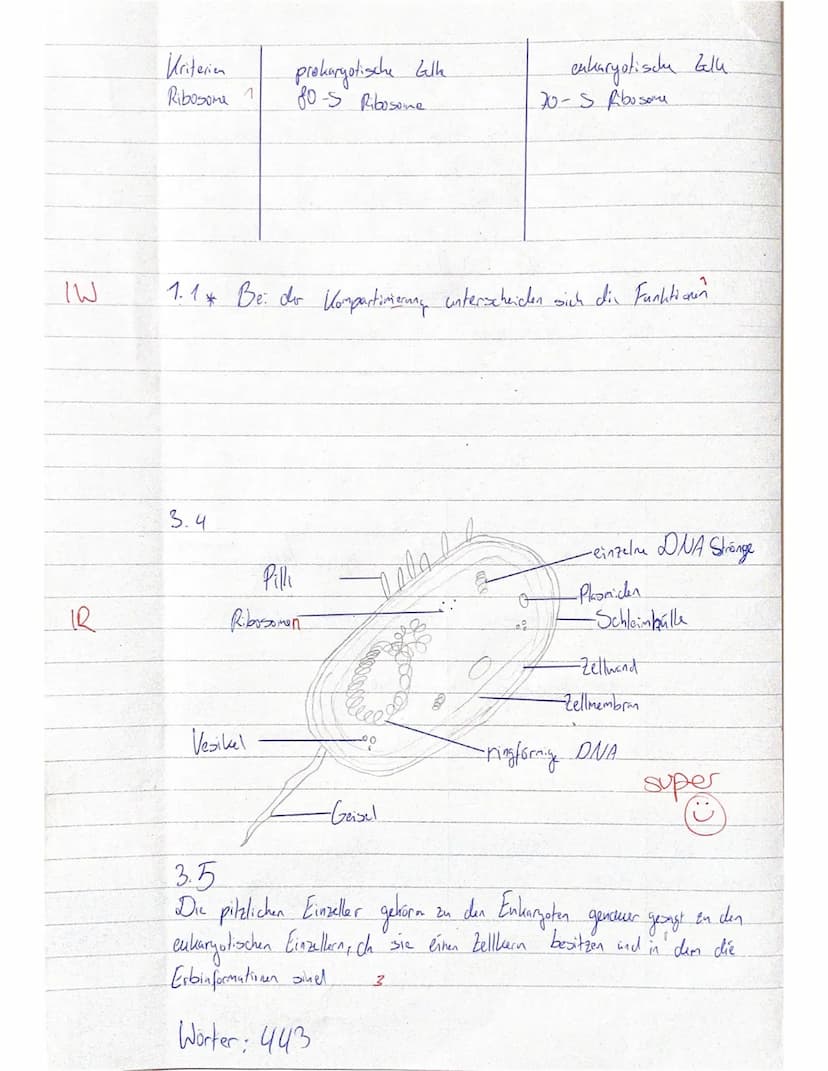 Kriterien prokaryotische Zelle eukaryotische Zelle
Ribosome 1 80-S Ribosome 70-S Ribosome
IW 1.1* Bei der Kompartimierung unterscheiden sich die Funktionen 1
3.4
einzelne DNA Stränge
Pilli
Plasmiden
IR Ribosomen Schleimhülle
Zellwand
Zellmembran
Vesikel
ringförmige DNA
super
Geisel
3.5
Die pilzlichen Einzeller gehören zu den Eukaryoten genauer gesagt zu den
eukaryotischen Einzellern, da sie einen Zellkern besitzen und in dem die
Erbinformationen sind 3
Wörter: 443